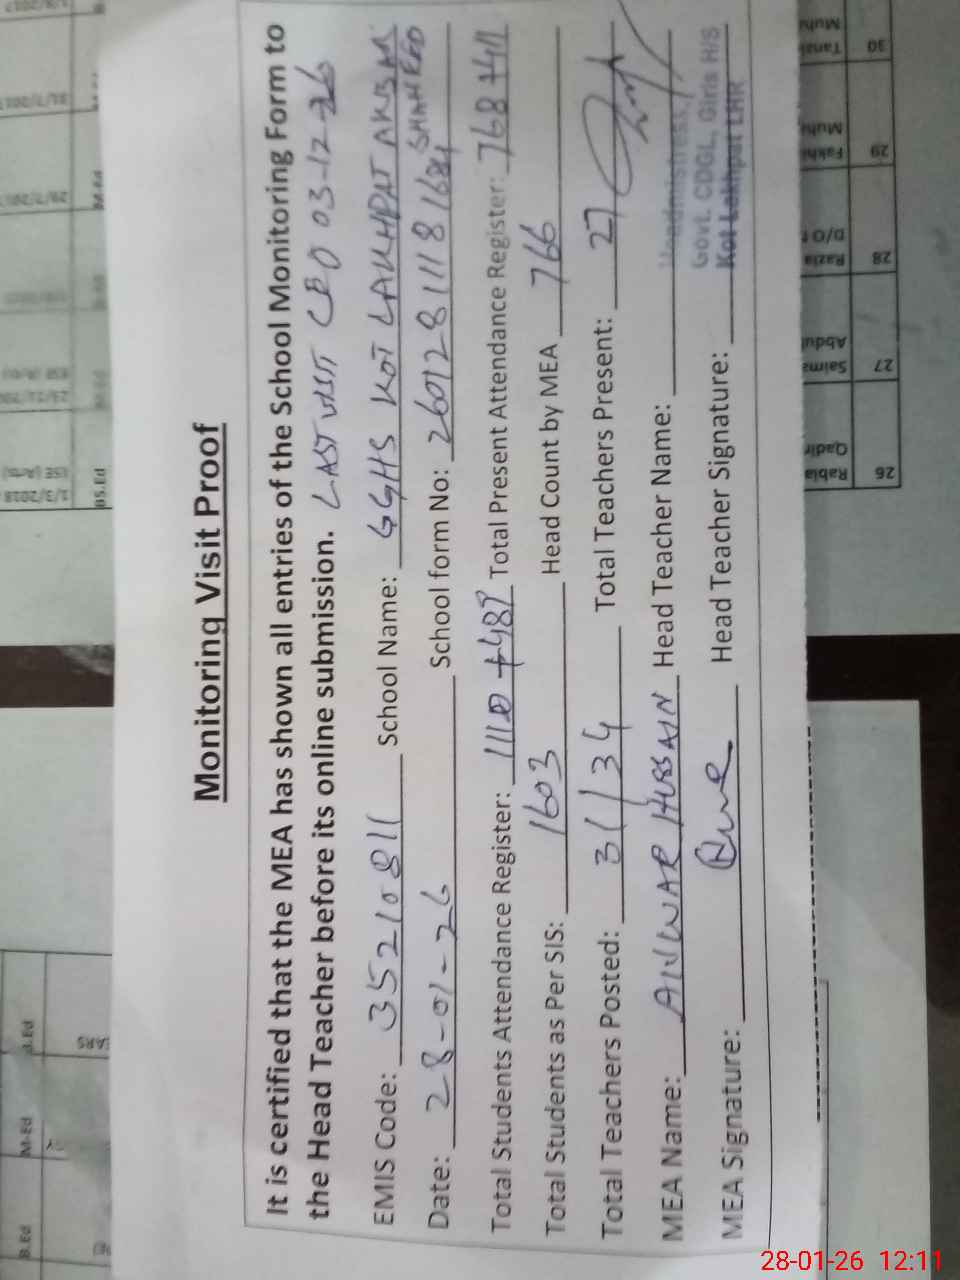 Monitoring Visit Proof
It is certified that the MEA has shown all entries of the School Monitoring Form to
the Head Teacher before its online submission. LAST VISIT CEO 03-12-26
EMIS Code: 35210811 School Name: GGHS KOT LAKHPAT AKBAR SHAHEED
Date: 28-01-26 School form No: 260128111181684
Total Students Attendance Register: 1110 +489 Total Present Attendance Register: 768+411
Total Students as Per SIS: 1603 Head Count by MEA 766
Total Teachers Posted: 31/34 Total Teachers Present: 27
MEA Name: ANWAR HUSSAIN Head Teacher Name: Headmistress
Govt. CDGL, Girls H/S
MEA Signature: Head Teacher Signature: Kot Lakhpat LHR
26 Rabia Qadir
27 Saima Abdul
28 Razia D/O
29 Muh
30 Muh
1/3/2018
B.Ed
M-Ed
B.Ed
28-01-26 12:11